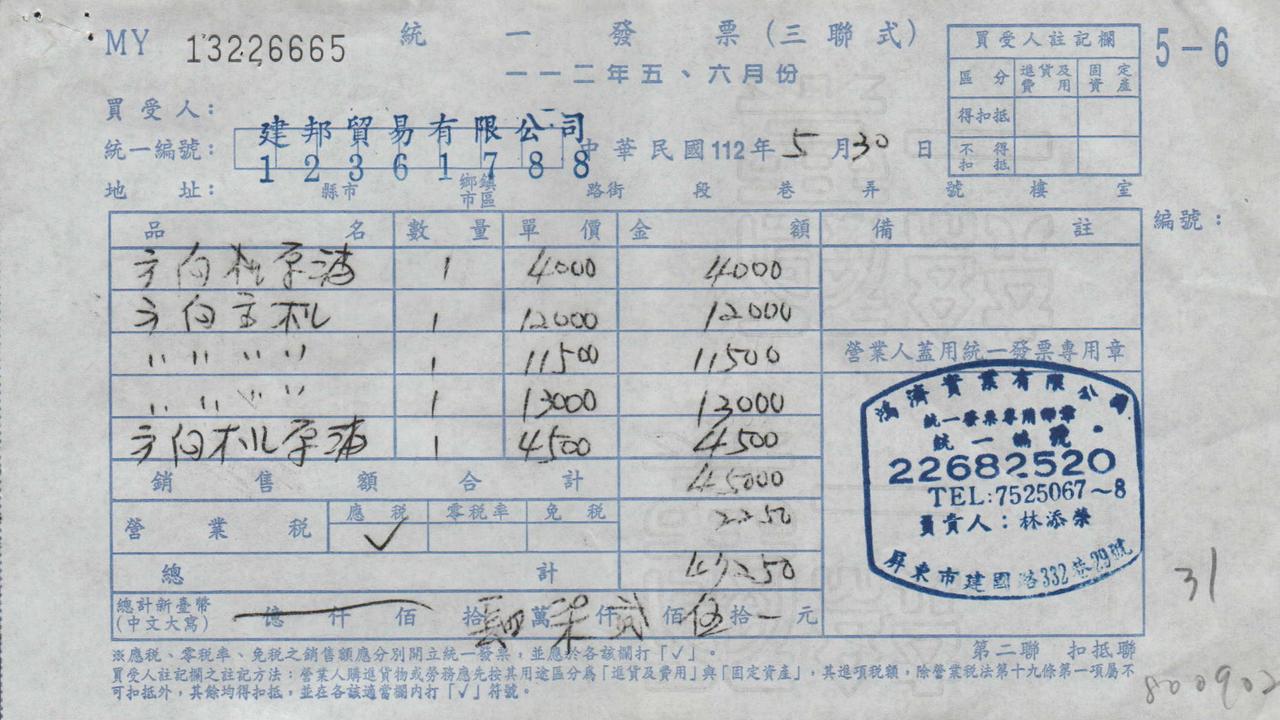 MY 13226665 統一發票(三聯式) 5-6
一一二年五、六月份
買受人註記欄
區分 進貨及費用 固定資產
得扣抵
不得扣抵
買受人: 建邦貿易有限公司
統一編號: 12361788 中華民國112年5月30日
地址: 縣市 鄉鎮市區 路街 段 巷 弄 號 樓 室
品名 數量 單價 金額 備註 編號:
方向機 1 4000 4000
方向主机 1 12000 12000
〃 〃 〃 〃 1 11500 11500
營業人蓋用統一發票專用章
〃 〃 〃 〃 1 13000 13000
方向机 1 4500 4500
銷售額合計 45000
營業稅 應稅 ✓ 零稅率 免稅 2250
總計 47250
總計新臺幣(中文大寫) 億仟佰拾肆萬柒仟貳佰伍拾元
鴻濟實業有限公司
統一發票專用印章
統一編號
22682520
TEL:7525067~8
負責人:林添榮
屏東市建國路332巷29號
31
第二聯 扣抵聯
※應稅、零稅率、免稅之銷售額應分別開立統一發票,並應於各該欄打「✓」。
買受人註記欄之註記方法:營業人購進貨物或勞務應先按其用途區分為「進貨及費用」與「固定資產」,其進項稅額,除營業稅法第十九條第一項屬不
可扣抵外,其餘均得扣抵,並在各該適當欄內打「✓」符號。
800902